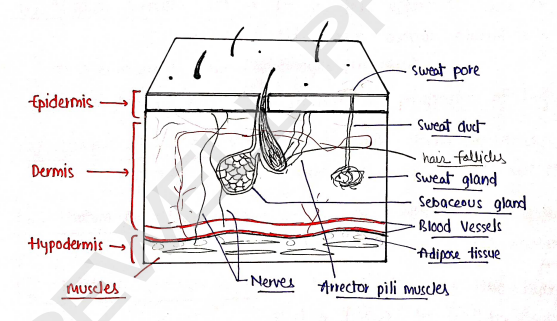 sweat pore
Epidermis
sweat duct
hair follicles
Dermis
sweat gland
Sebaceous gland
Blood Vessels
Hypodermis
Adipose tissue
muscles
Nerves
Arrector pili muscles